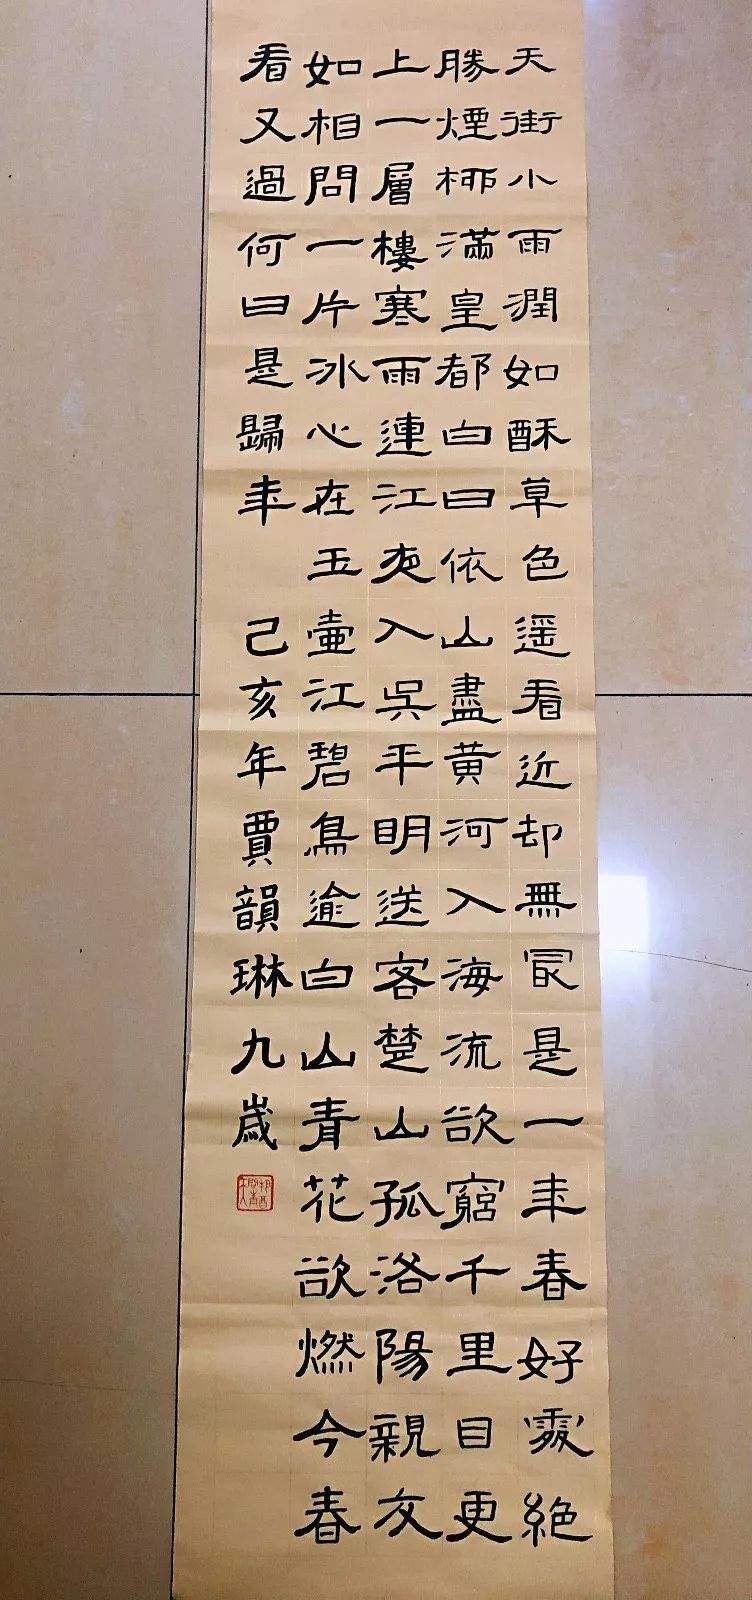 天街小雨潤如酥草色遥看近却無冣是一年春好處絕
勝煙柳滿皇都白日依山盡黃河入海流欲窮千里目更
上一層樓寒雨連江夜入吳平明送客楚山孤洛陽親友
如相問一片冰心在玉壺江碧鳥逾白山青花欲燃今春
看又過何日是歸年 己亥年賈韻琳九歲